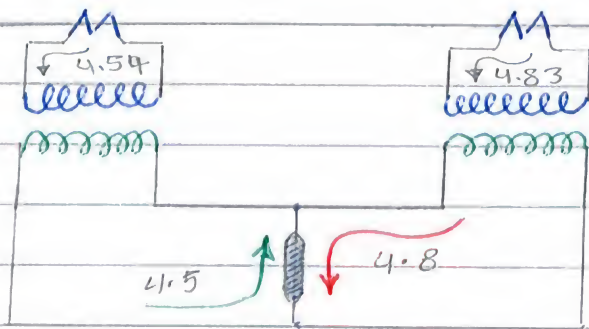 4.54
4.83
4.5
4.8